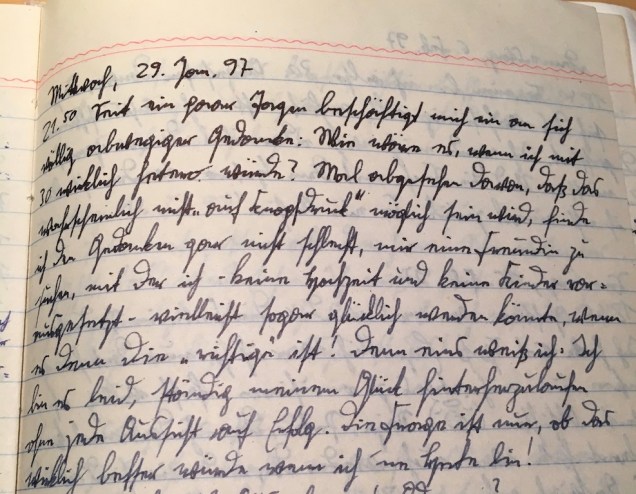 Mittwoch, 29. Jan. 97
21.50 Seit ein paar Tagen beschäftigt mich ein an sich
völlig abwegiger Gedanke: Wie wäre es, wenn ich mit
30 wirklich heiraten würde? Mal abgesehen davon, daß das
wahrscheinlich nicht „auf Knopfdruck" möglich sein wird, finde
ich den Gedanken gar nicht schlecht, mir eine Freundin zu
suchen, mit der ich - keine Hochzeit und keine Kinder vor=
ausgesetzt - vielleicht sogar glücklich werden könnte, wenn
es denn die „richtige" ist! Denn eins weiß ich: Ich
bin es leid, ständig meinem Glück hinterherzulaufen
ohne jede Aussicht auf Erfolg. Die Frage ist nur, ob das
wirklich besser würde wenn ich 'ne